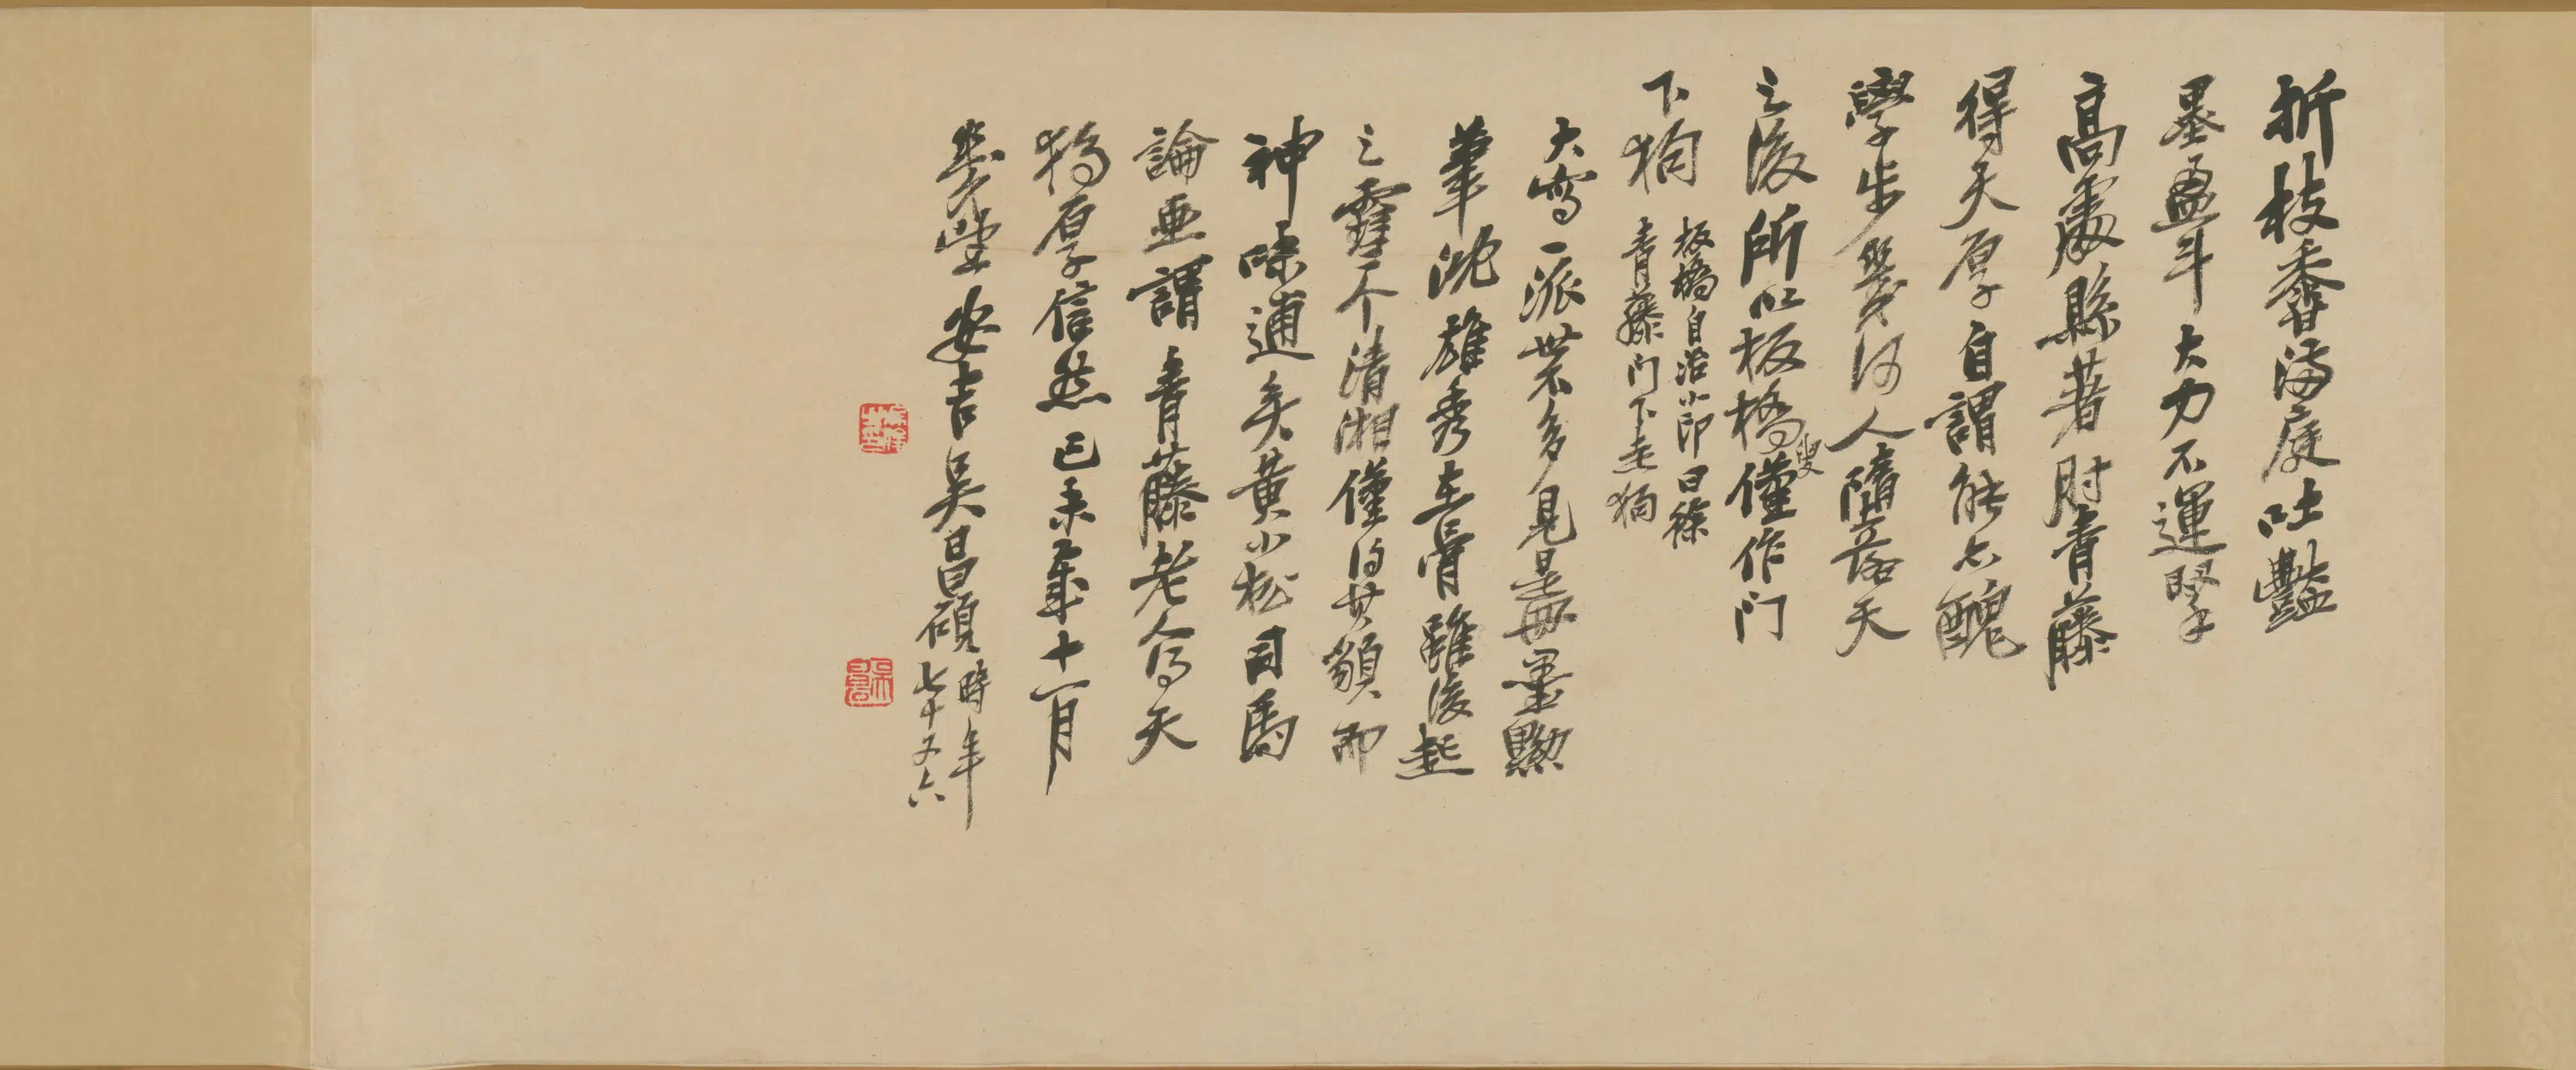 折枝香滿庭吐豔
墨盈斗大力不運掔
高處縣著肘青藤
得天厚自謂能亦醜
學步幾何人隨落天
之後所以板橋叟僅作門
下狗
板橋自治小印曰徐
青藤门下走狗
大寫一派世不多見是冊墨勲
筆沈雄秀在骨雖後起
之雪个清湘僅得其貌而
神味逋矣黄小松司馬
論畫謂青藤老人得天
獨厚信然己未年十一月
幾望安吉吳昌碩
時年
七十又六